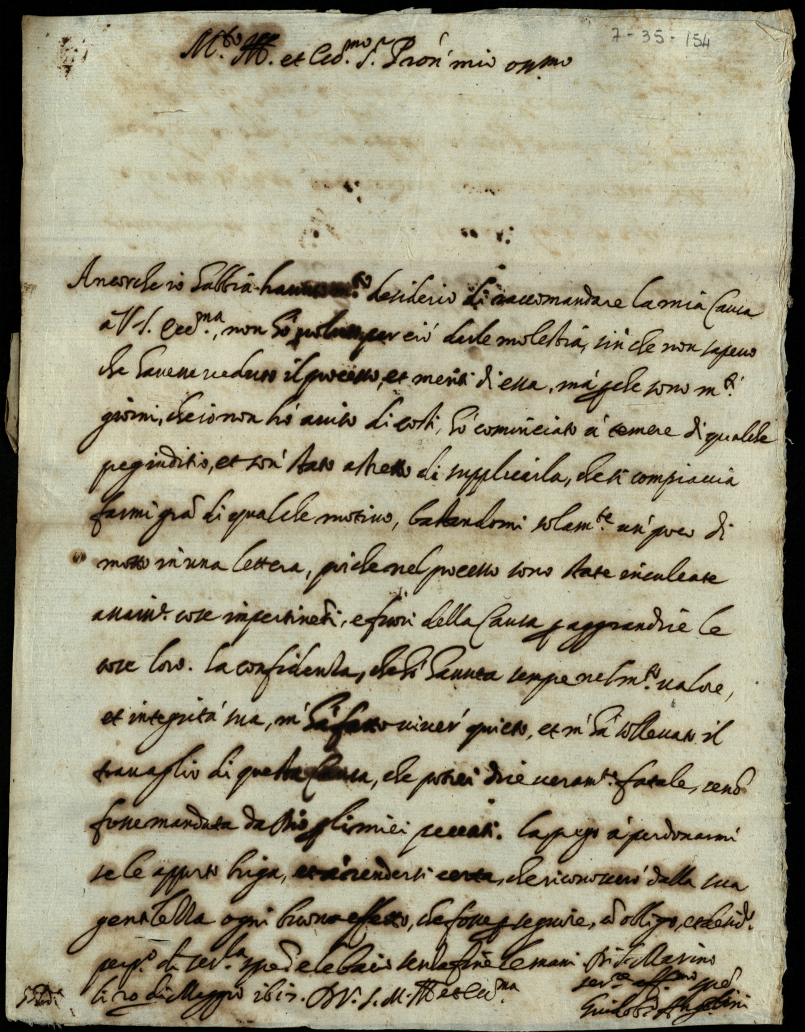 7-35-154
M.to Ill.re et Ecc.mo S.r Pron mio oss.mo
Ancorche io habbia desiderio di raccomandare la mia Causa
a V.S. Ecc.ma, non hò per ciò darle molestia, sin che non sapevo
che havesse veduto il processo, et meriti di essa, mà perche sono m.ti
giorni, che io non hò aviso di costì, hò cominciato à temere di qualche
pregiuditio, et son stato astretto di supplicarla, che si compiaccia
farmi gra di qualche motivo, bastandomi solam.te un poco di
motto in una lettera, poiche nel processo sono state inculcate
cose impertinenti, e fuori della Causa p aggrandire le
cose loro. La confidenza, che hò havuta sempre nel m.to valore,
et integrità sua, m'hà fatto viver quieto, et m'hà sollevato il
travaglio di questa Causa, che potrei dire veram.te fatale, se nò
fosse mandata da Dio p li miei peccati. La prego à perdonarmi
se le apporto briga, et à rendersi certa, che riconoscerò dalla sua
gentilezza ogni buon effetto, che fosse p seguire, cò obligo, et desid.o
di ser.la e le bacio le mani Di S. Marino
li 20 di Maggio 1617. Di V.S. M. Ill.re et Ecc.ma
ser.re aff.mo